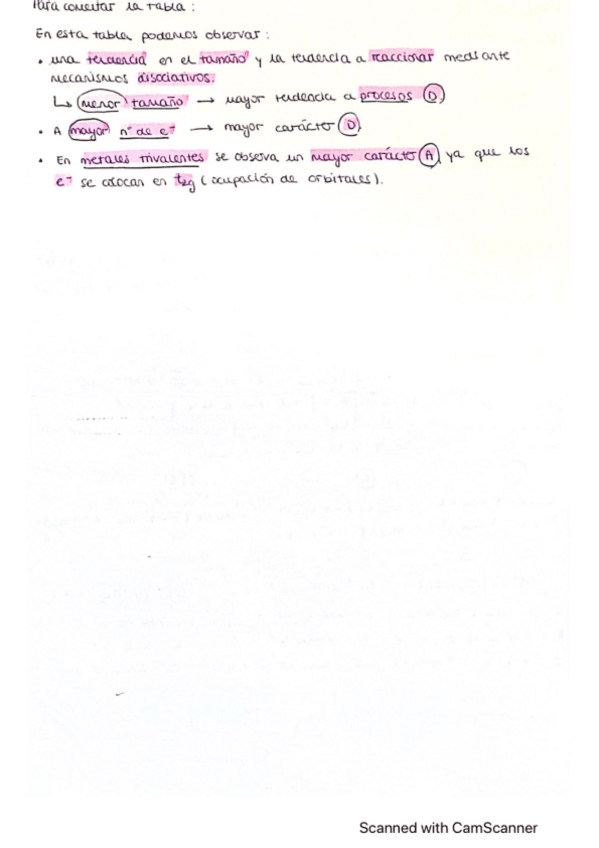 Para comentar la tabla :
En esta tabla podemos observar :
• una tendencia en el tamaño y la tendencia a reaccionar mediante
mecanismos disociativos.
↳ menor tamaño → mayor tendencia a procesos D
• A mayor nº de e⁻ → mayor carácter D
• En metales trivalentes se observa un mayor carácter A, ya que los
e⁻ se colocan en t2g (ocupación de orbitales).
Scanned with CamScanner